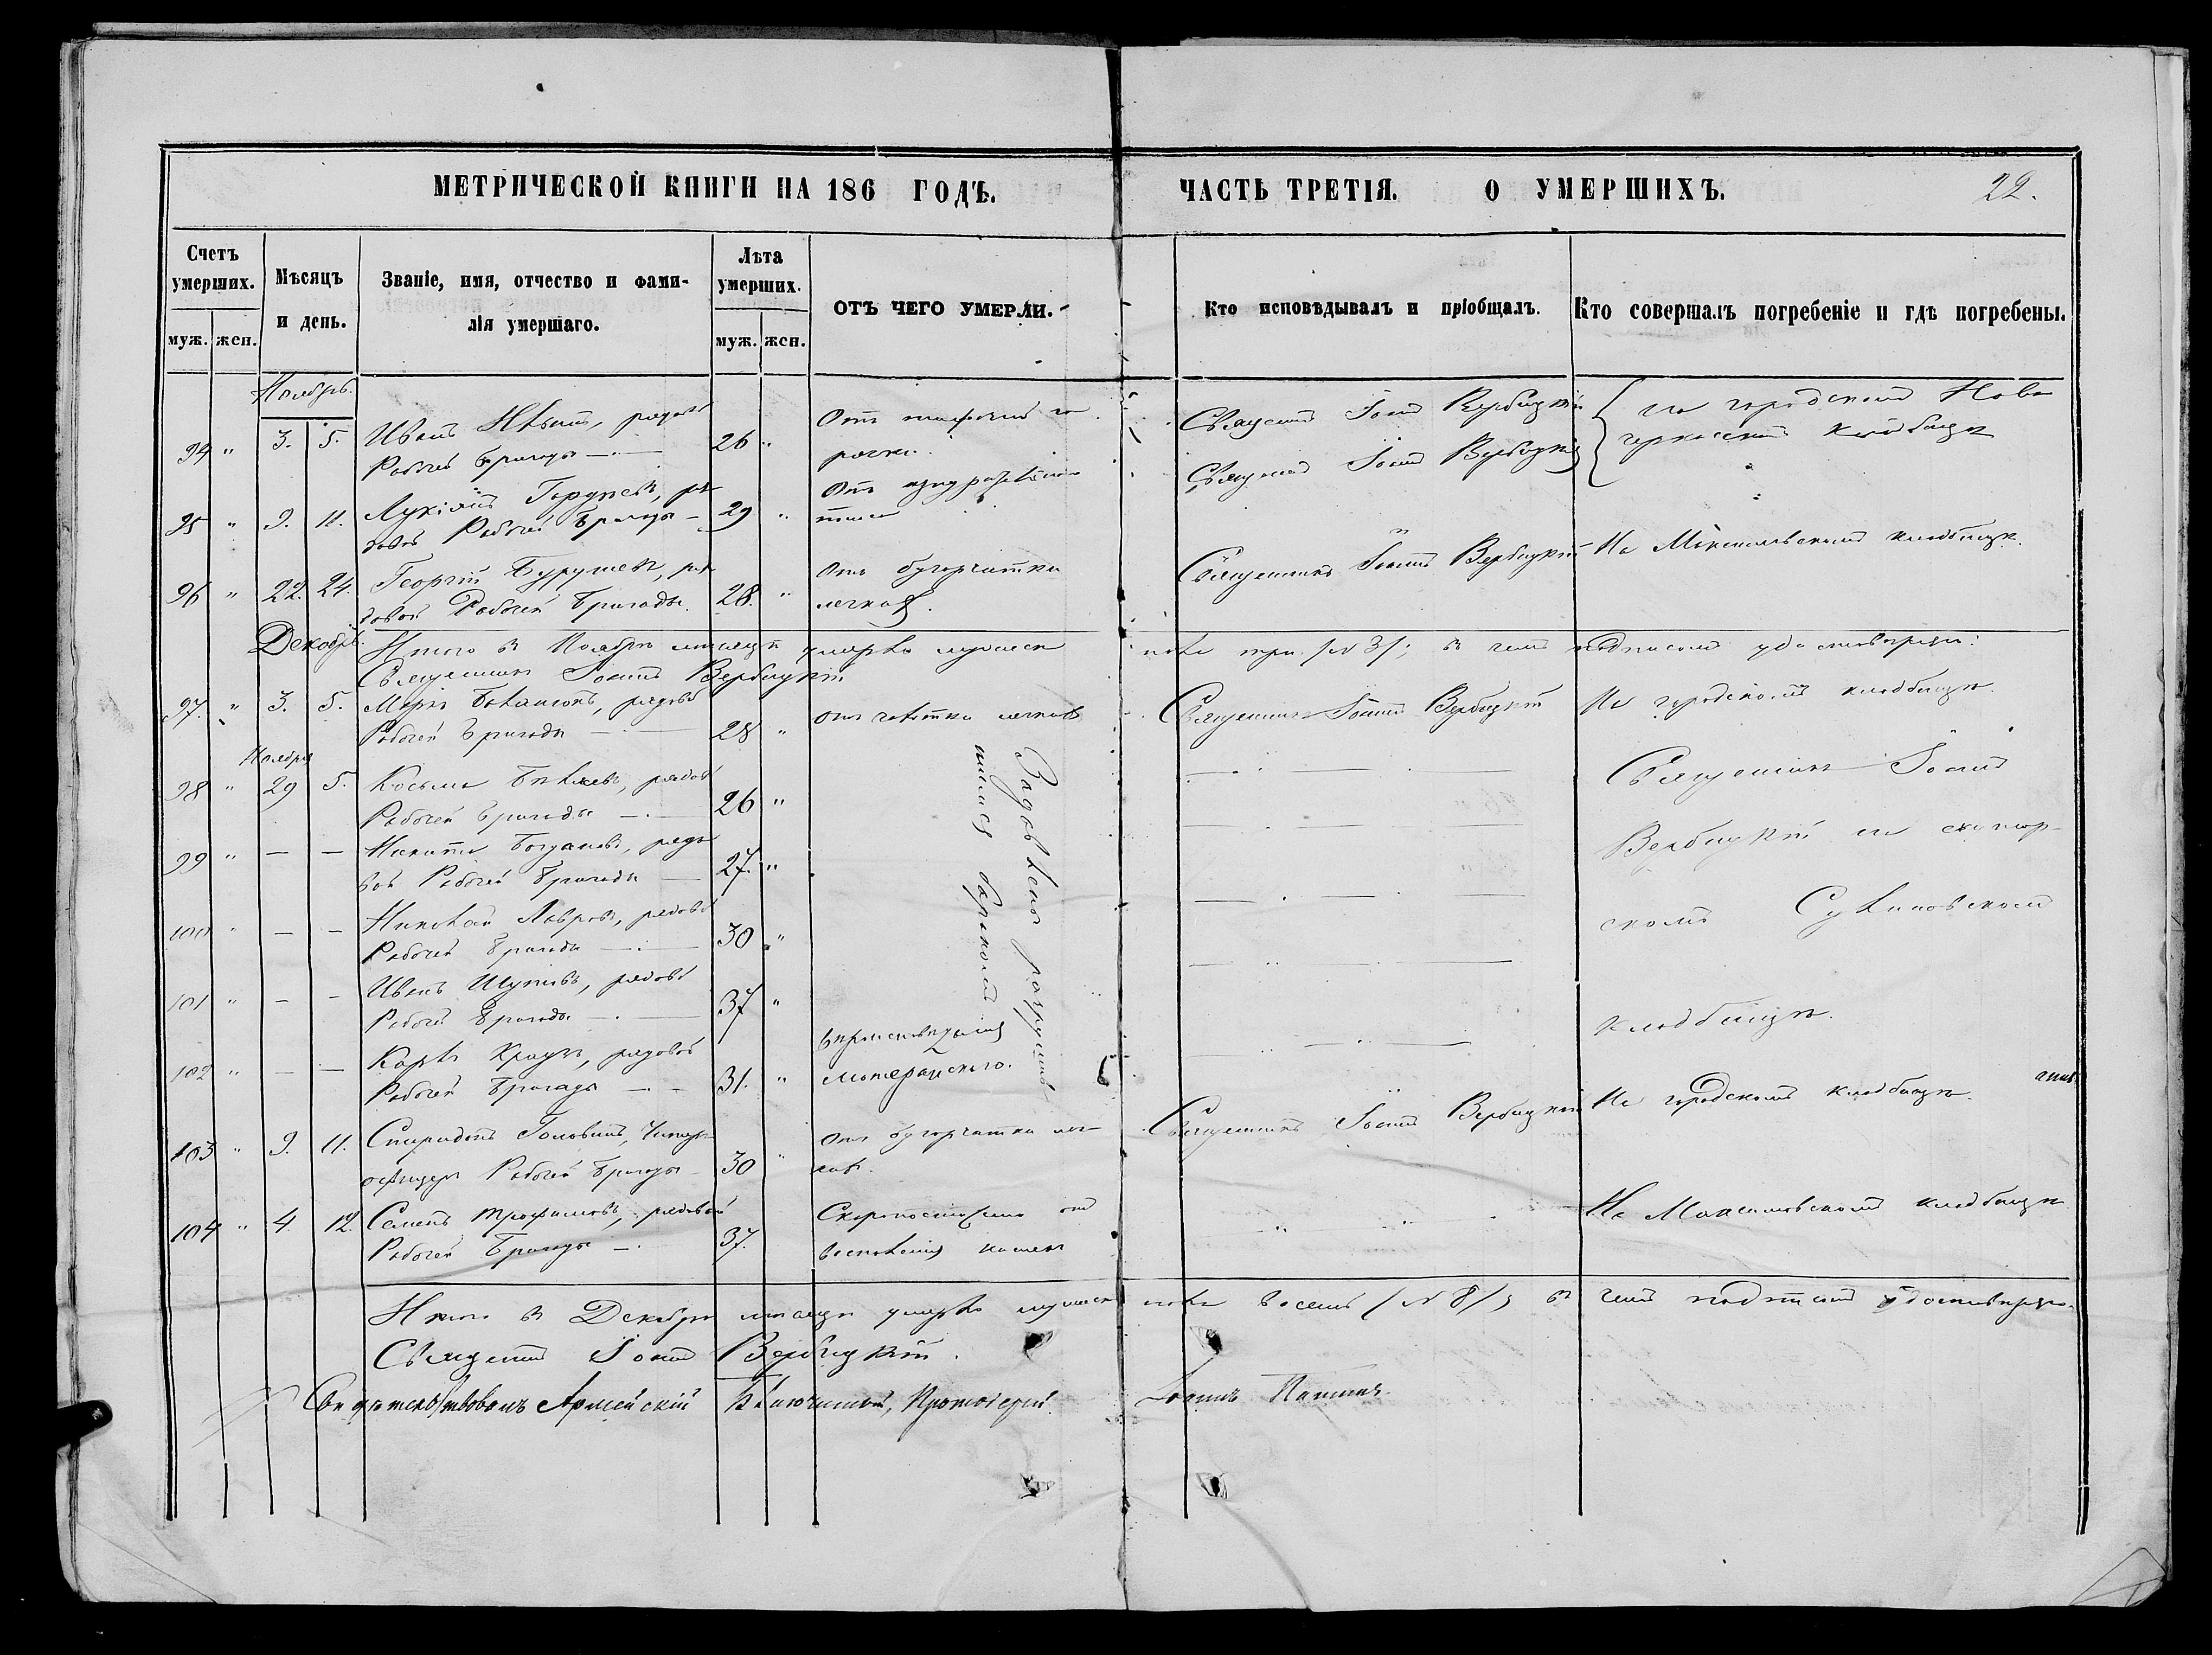 МЕТРИЧЕСКОЙ КНИГИ НА 186 ГОДѢ.
ЧАСТЬ ТРЕТІЯ. О УМЕРШИХЪ.
22.
Счетъ умершихъ.
муж. жен.
Мѣсяцъ и день.
Званіе, имя, отчество и фами-
лія умершаго.
Лѣта умершихъ.
муж. жен.
ОТЪ ЧЕГО УМЕРЛИ.
Кто исповѣдывалъ и пріобщалъ.
Кто совершалъ погребеніе и гдѣ погребены.
Ноябрь.
94 " 3. 5. Иванъ рядовой
Рабочей Бригады 26 "
Отъ
рячки.
Священникъ Іоаннъ Вербицкій
на городскомъ Ново
черкасскомъ кладбищѣ
95 " 9. 11. Лукіянъ ря-
довой Рабочей Бригады 29 "
Отъ
Священникъ Іоаннъ Вербицкій
96 " 22. 24. Георгій ря-
довой Рабочей Бригады. 28. "
Отъ бугорчатки
легкихъ.
Священникъ Іоаннъ Вербицкій
На Максимовскомъ кладбищѣ.
Декабрь.
Итого въ Ноябрѣ мѣсяцѣ умерло мужеска пола три /№ 3/; въ чемъ подписомъ удостовѣряю:
Священникъ Іоаннъ Вербицкій
97. " 3. 5. рядовой
Рабочей Бригады 28 "
отъ чахотки легкихъ
Священникъ Іоаннъ Вербицкій
На городскомъ кладбищѣ.
Ноября
98 " 29 5. Косьма Бѣляевъ, рядовой
Рабочей Бригады 26 "
Задавлены разрушив-
шимся баракомъ
Священникъ Іоаннъ
99 " — — Никита Богдановъ, рядо-
вой Рабочей Бригады 27. "
Вербицкій на
100 " — — Николай Лавровъ, рядовой
Рабочей Бригады 30 "
скомъ
101 " — — Иванъ Шутовъ, рядовой
Рабочей Бригады 37 "
кладбищѣ.
102 " — — Карлъ рядовой
Рабочей Бригады 31. "
вѣроисповѣданія
лютеранскаго.
103 " 9. 11. Спиридонъ Головинъ, Унтеръ-
офицеръ Рабочей Бригады 30 "
отъ бугорчатки лег-
кихъ.
Священникъ Іоаннъ Вербицкій
На городскомъ кладбищѣ.
104 " 4. 12. Семенъ Трофимовъ, рядовой
Рабочей Бригады 37.
Скоропостижно отъ
воспаленія
На Максимовскомъ кладбищѣ
Итого въ Декабрѣ мѣсяцѣ умерло мужеска пола восемь /№ 8/; въ чемъ подписомъ удостовѣряю.
Священникъ Іоаннъ Вербицкій.
Свидѣтельствовалъ Армейскій Благочинный, Протоіерей Іоаннъ